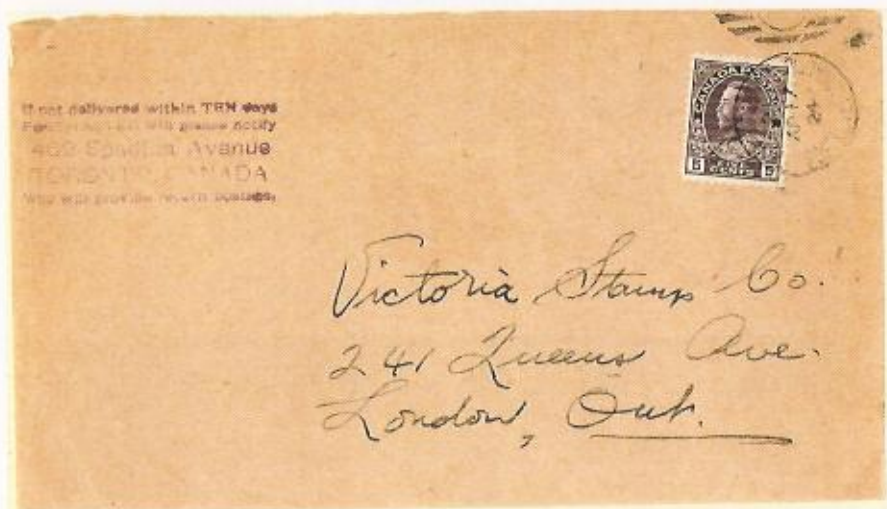 If not delivered within TEN days
will please notify
Avenue
TORONTO, CANADA
who will provide return postage.
CANADA POSTAGE
5 CENTS 5
24
Victoria Stamp Co.
241 Queens Ave.
London, Ont.